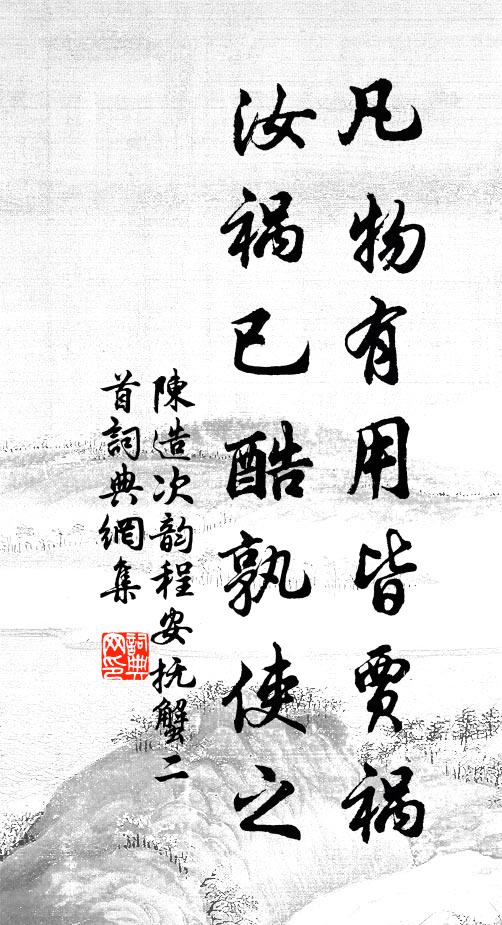 凡物有用皆賈祸
汝祸已酷孰使之
陳造次韵程安抚蟹二
首詞典網集
詞典
网印